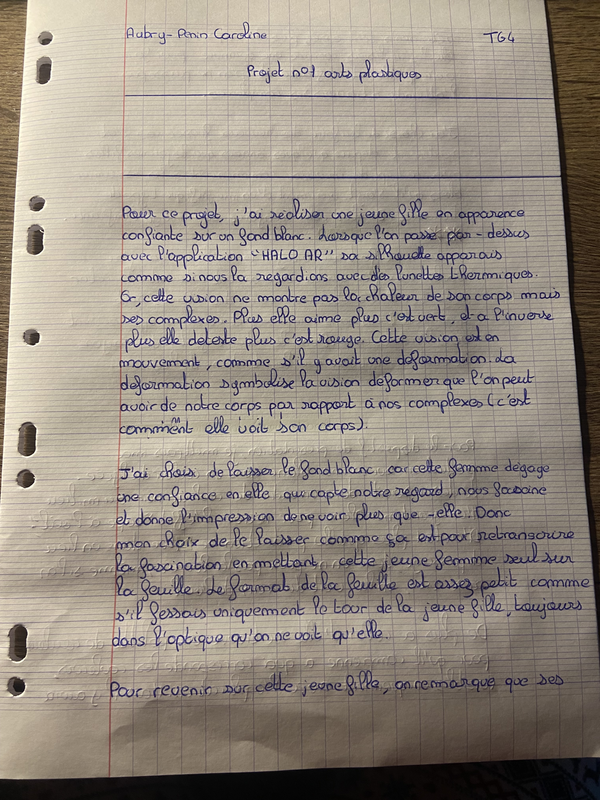 Aubry-Penin Caroline TG4
Projet n°1 arts plastiques
Pour ce projet, j'ai réaliser une jeune fille en apparence
confiante sur un fond blanc. Lorsque l'on passe par-dessus
avec l'application "HALO AR" sa silhouette apparais
comme si nous la regardions avec des lunettes thermiques.
Or, cette vision ne montre pas la chaleur de son corps mais
ses complexes. Plus elle aime plus c'est vert, et a l'inverse
plus elle deteste plus c'est rouge. Cette vision est en
mouvement, comme s'il y avait une deformation. La
deformation symbolise la vision deformer que l'on peut
avoir de notre corps par rapport à nos complexes (c'est
comment elle voit son corps).
J'ai choisi de laisser le fond blanc car cette femme dégage
une confiance en elle qui capte notre regard, nous fascine
et donne l'impression de ne voir plus que -elle. Donc
mon choix de le laisser comme ça est pour retranscrire
la fascination en mettant cette jeune femme seul sur
la feuille. Le format de la feuille est assez petit comme
s'il fessais uniquement le tour de la jeune fille, toujours
dans l'optique qu'on ne voit qu'elle.
Pour revenir sur cette jeune fille, on remarque que ses